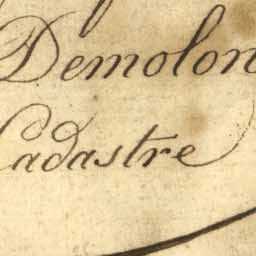 Demolon
Cadastre